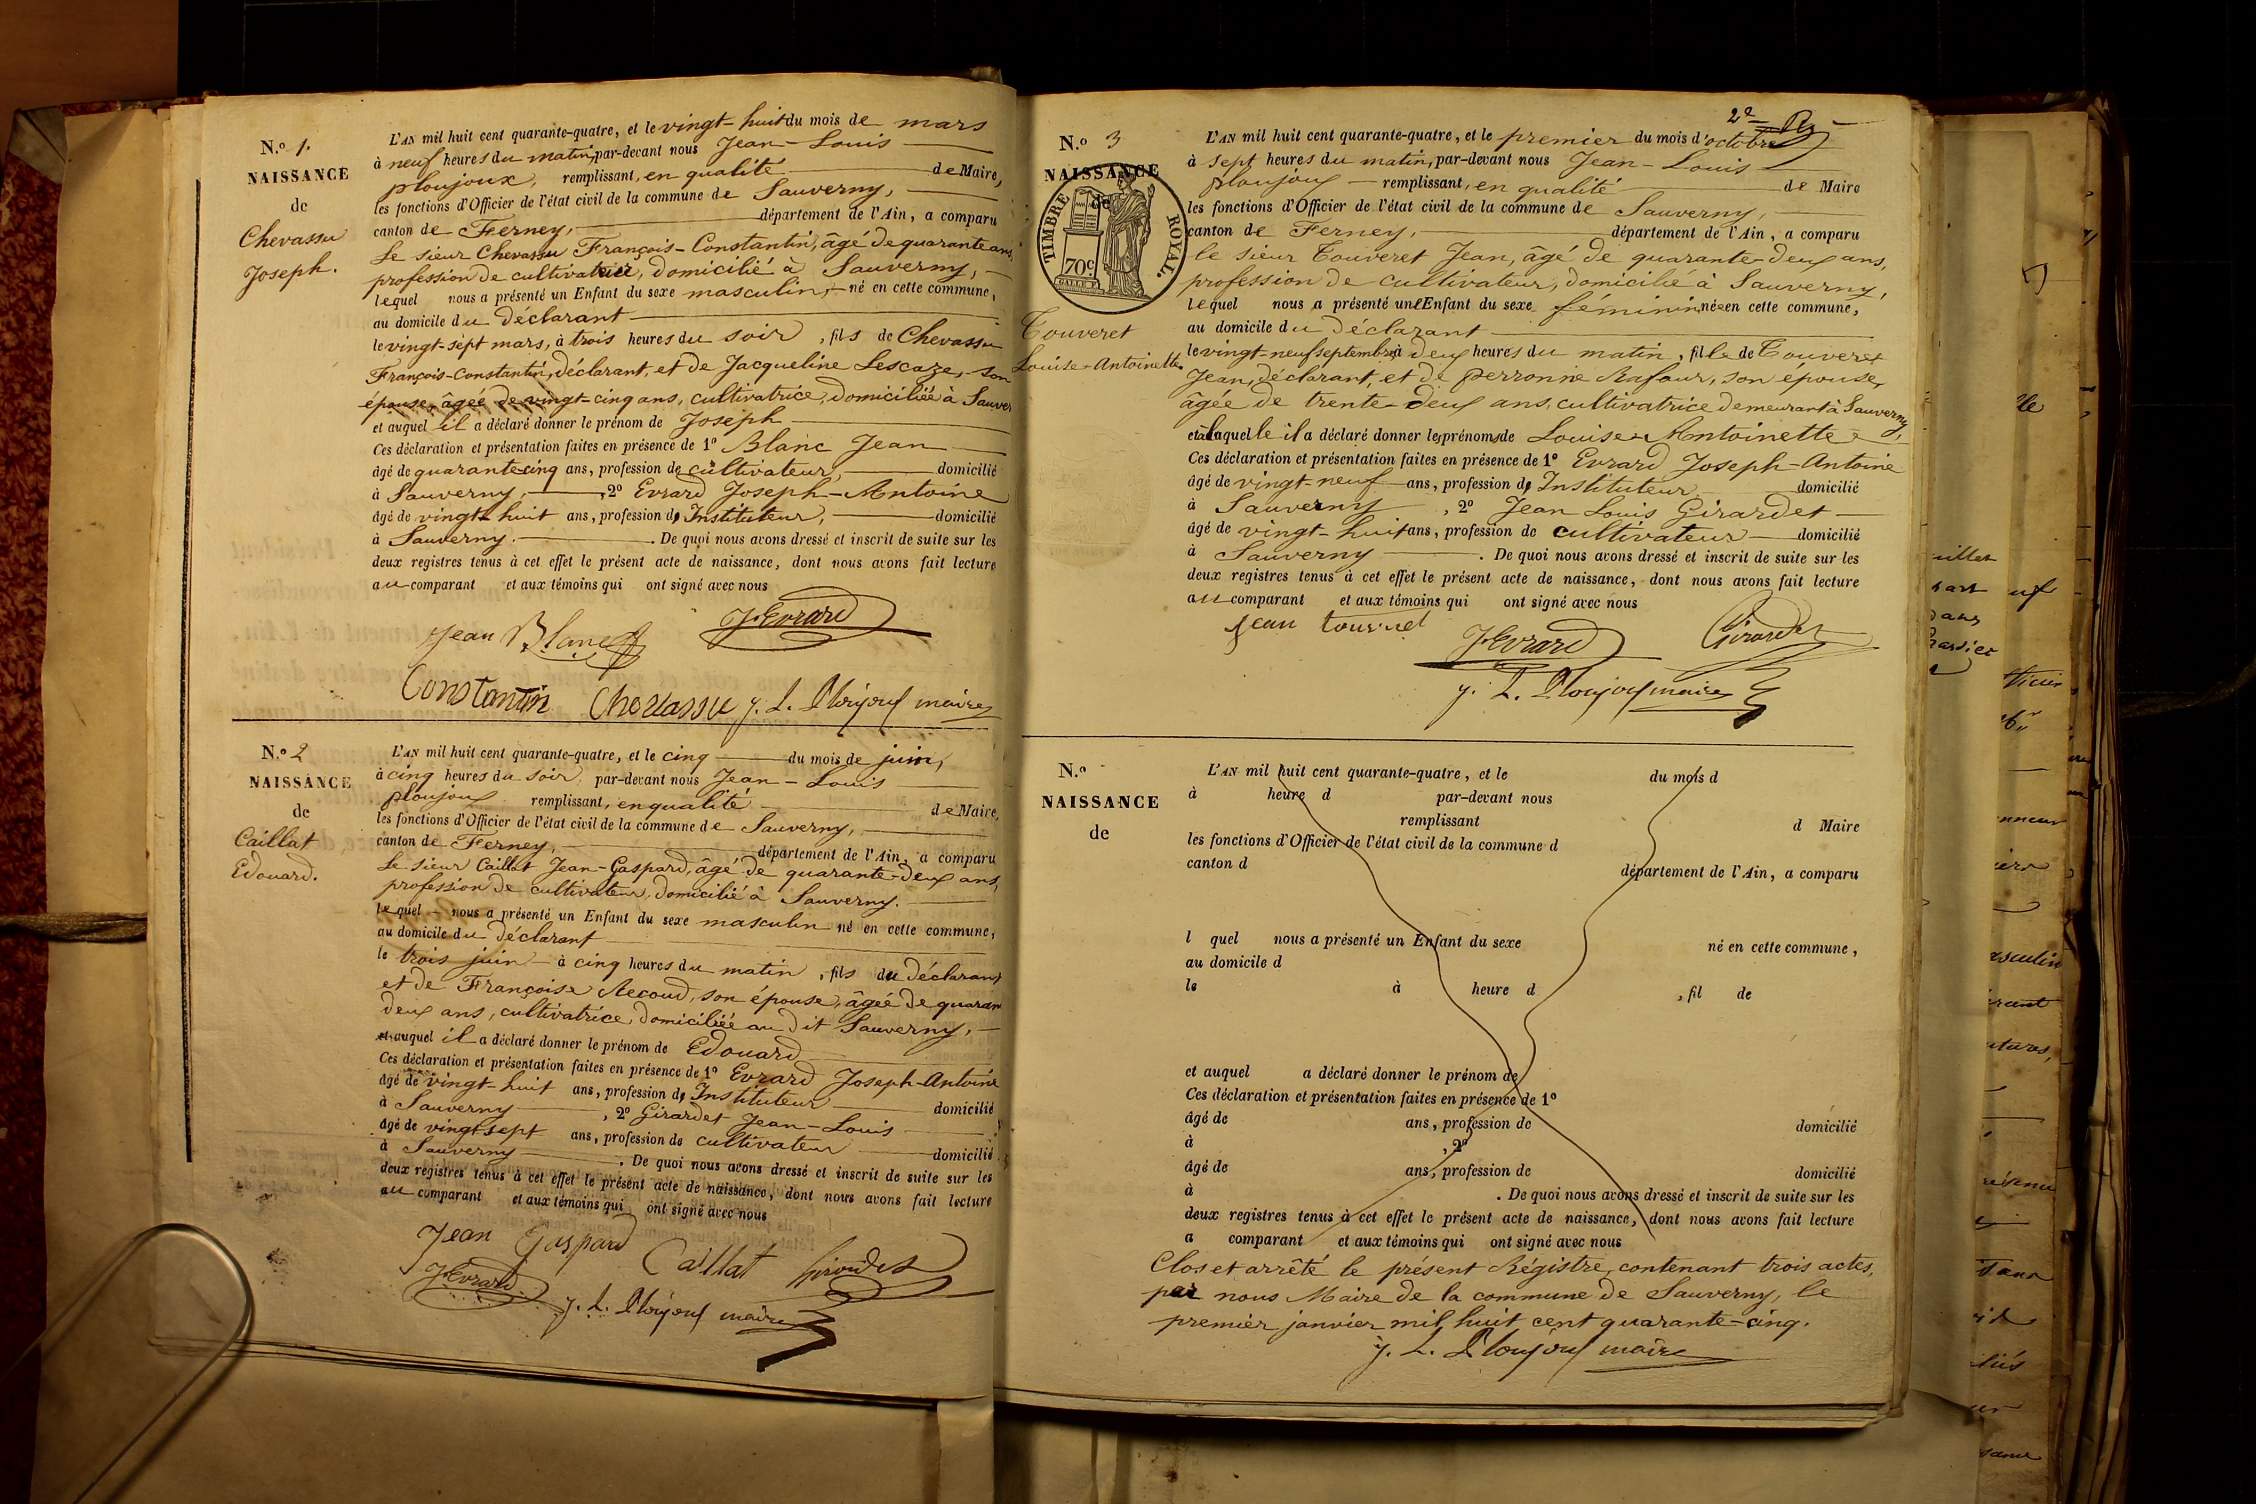 N.o 1.
NAISSANCE
de
Chevassu
Joseph.
L'AN mil huit cent quarante-quatre, et le vingt-huit du mois de mars
à neuf heures du matin, par-devant nous Jean-Louis
ploujoux, remplissant, en qualité de Maire,
les fonctions d'Officier de l'état civil de la commune de Sauverny,
canton de Ferney, département de l'Ain, a comparu
Le sieur Chevassu François-Constantin, âgé de quarante ans,
profession de cultivateur, domicilié à Sauverny,
lequel nous a présenté un Enfant du sexe masculin, né en cette commune,
au domicile du déclarant
le vingt-sept mars, à trois heures du soir, fils de Chevassu
François-Constantin, déclarant, et de Jacqueline Lescaze, son
épouse, âgée de vingt-cinq ans, cultivatrice, domiciliée à Sauver
et auquel il a déclaré donner le prénom de Joseph
Ces déclaration et présentation faites en présence de 1o Blanc Jean
âgé de quarante-cinq ans, profession de cultivateur, domicilié
à Sauverny, , 2o Evrard Joseph-Antoine
âgé de vingt-huit ans, profession d, Instituteur, domicilié
à Sauverny. . De quoi nous avons dressé et inscrit de suite sur les
deux registres tenus à cet effet le présent acte de naissance, dont nous avons fait lecture
au comparant et aux témoins qui ont signé avec nous
Jean Blanc J. Evrard
Constantin Chevassu J. L. Ploujoux maire
N.o 2
NAISSANCE
de
Caillat
Edouard.
L'AN mil huit cent quarante-quatre, et le cinq du mois de juin,
à cinq heures du soir, par-devant nous Jean-Louis
ploujoux remplissant, en qualité de Maire,
les fonctions d'Officier de l'état civil de la commune de Sauverny,
canton de Ferney, département de l'Ain, a comparu
Le sieur Caillat Jean-Gaspard, âgé de quarante-deux ans,
profession de cultivateur, domicilié à Sauverny.
lequel nous a présenté un Enfant du sexe masculin né en cette commune,
au domicile du déclarant
le trois juin à cinq heures du matin, fils du déclarant
et de Françoise Recoud, son épouse, âgée de quaran
deux ans, cultivatrice, domiciliée au dit Sauverny,
et auquel il a déclaré donner le prénom de Edouard
Ces déclaration et présentation faites en présence de 1o Evrard Joseph-Antoine
âgé de vingt-huit ans, profession d, Instituteur domicilié
à Sauverny , 2o Girardet Jean-Louis
âgé de vingt-sept ans, profession de cultivateur domicilié
à Sauverny . De quoi nous avons dressé et inscrit de suite sur les
deux registres tenus à cet effet le présent acte de naissance, dont nous avons fait lecture
au comparant et aux témoins qui ont signé avec nous
Jean Gaspard Caillat Girardet
J. Evrard J. L. Ploujoux maire
2e
N.o 3
NAISSANCE
de
TIMBRE ROYAL.
70c
Touveret
Louise-Antoinette
L'AN mil huit cent quarante-quatre, et le premier du mois d'octobre
à sept heures du matin, par-devant nous Jean-Louis
Ploujoux remplissant, en qualité de Maire
les fonctions d'Officier de l'état civil de la commune de Sauverny,
canton de Ferney, département de l'Ain, a comparu
le sieur Touveret Jean, âgé de quarante-deux ans,
profession de cultivateur, domicilié à Sauverny,
lequel nous a présenté une Enfant du sexe féminin, née en cette commune,
au domicile du déclarant
le vingt-neuf septembre, à deux heures du matin, fille de Touveret
Jean, déclarant, et de perronne Rafour, son épouse,
âgée de trente-deux ans, cultivatrice demeurant à Sauverny,
et à laquelle il a déclaré donner les prénoms de Louise-Antoinette
Ces déclaration et présentation faites en présence de 1o Evrard Joseph-Antoine
âgé de vingt-neuf ans, profession d, Instituteur domicilié
à Sauverny , 2o Jean Louis Girardet
âgé de vingt-huit ans, profession de cultivateur domicilié
à Sauverny . De quoi nous avons dressé et inscrit de suite sur les
deux registres tenus à cet effet le présent acte de naissance, dont nous avons fait lecture
au comparant et aux témoins qui ont signé avec nous
Jean J. Evrard Girardet
J. L. Ploujoux maire
N.o
NAISSANCE
de
L'AN mil huit cent quarante-quatre, et le du mois d
à heure d par-devant nous
remplissant d Maire
les fonctions d'Officier de l'état civil de la commune d
canton d département de l'Ain, a comparu
l quel nous a présenté un Enfant du sexe né en cette commune,
au domicile d
le à heure d , fil de
et auquel a déclaré donner le prénom de
Ces déclaration et présentation faites en présence de 1o
âgé de ans, profession de domicilié
à , 2o
âgé de ans, profession de domicilié
à . De quoi nous avons dressé et inscrit de suite sur les
deux registres tenus à cet effet le présent acte de naissance, dont nous avons fait lecture
a comparant et aux témoins qui ont signé avec nous
Clos et arrêté le présent Régistre, contenant trois actes,
par nous Maire de la commune de Sauverny, le
premier janvier mil huit cent quarante-cinq.
J. L. Ploujoux maire